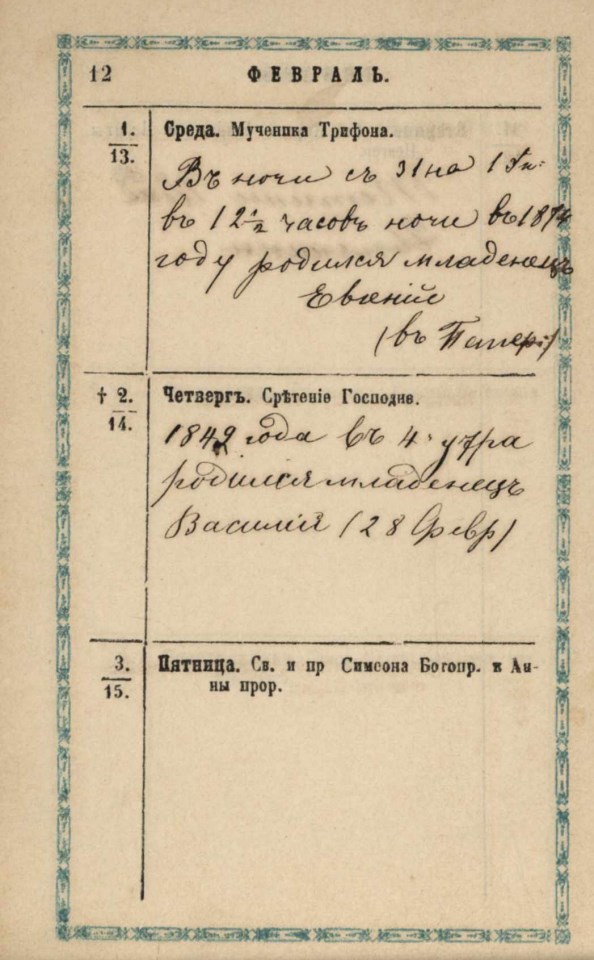 12 ФЕВРАЛЬ.
1.
13.
Среда. Мученика Трифона.
Въ ночи съ 31 на 1
въ 12 1/2 часовъ ночи въ 1874
году родился младенецъ
Евгеній
(въ
† 2.
14.
Четвергъ. Срѣтеніе Господне.
1842 года въ 4 утра
родился младенецъ
Василій (28 Февр)
3.
15.
Пятница. Св. и пр Симеона Богопр. и Ан-
ны прор.